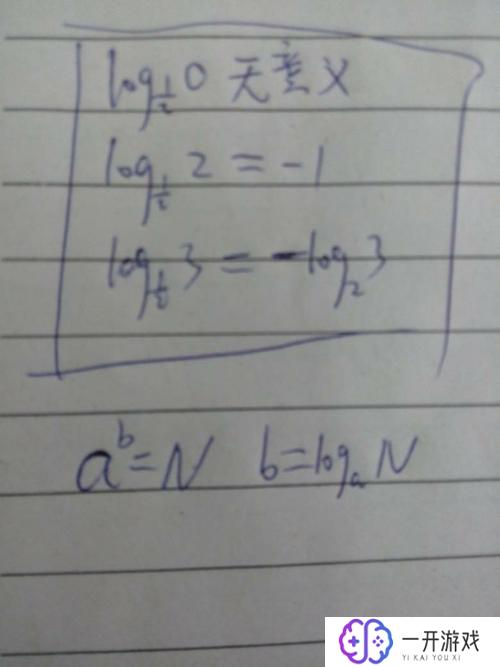 log½0 无意义
log½2=-1
log½3=-log₂3
aᵇ=N b=logₐN
一开游戏
YI KAI YOU XI